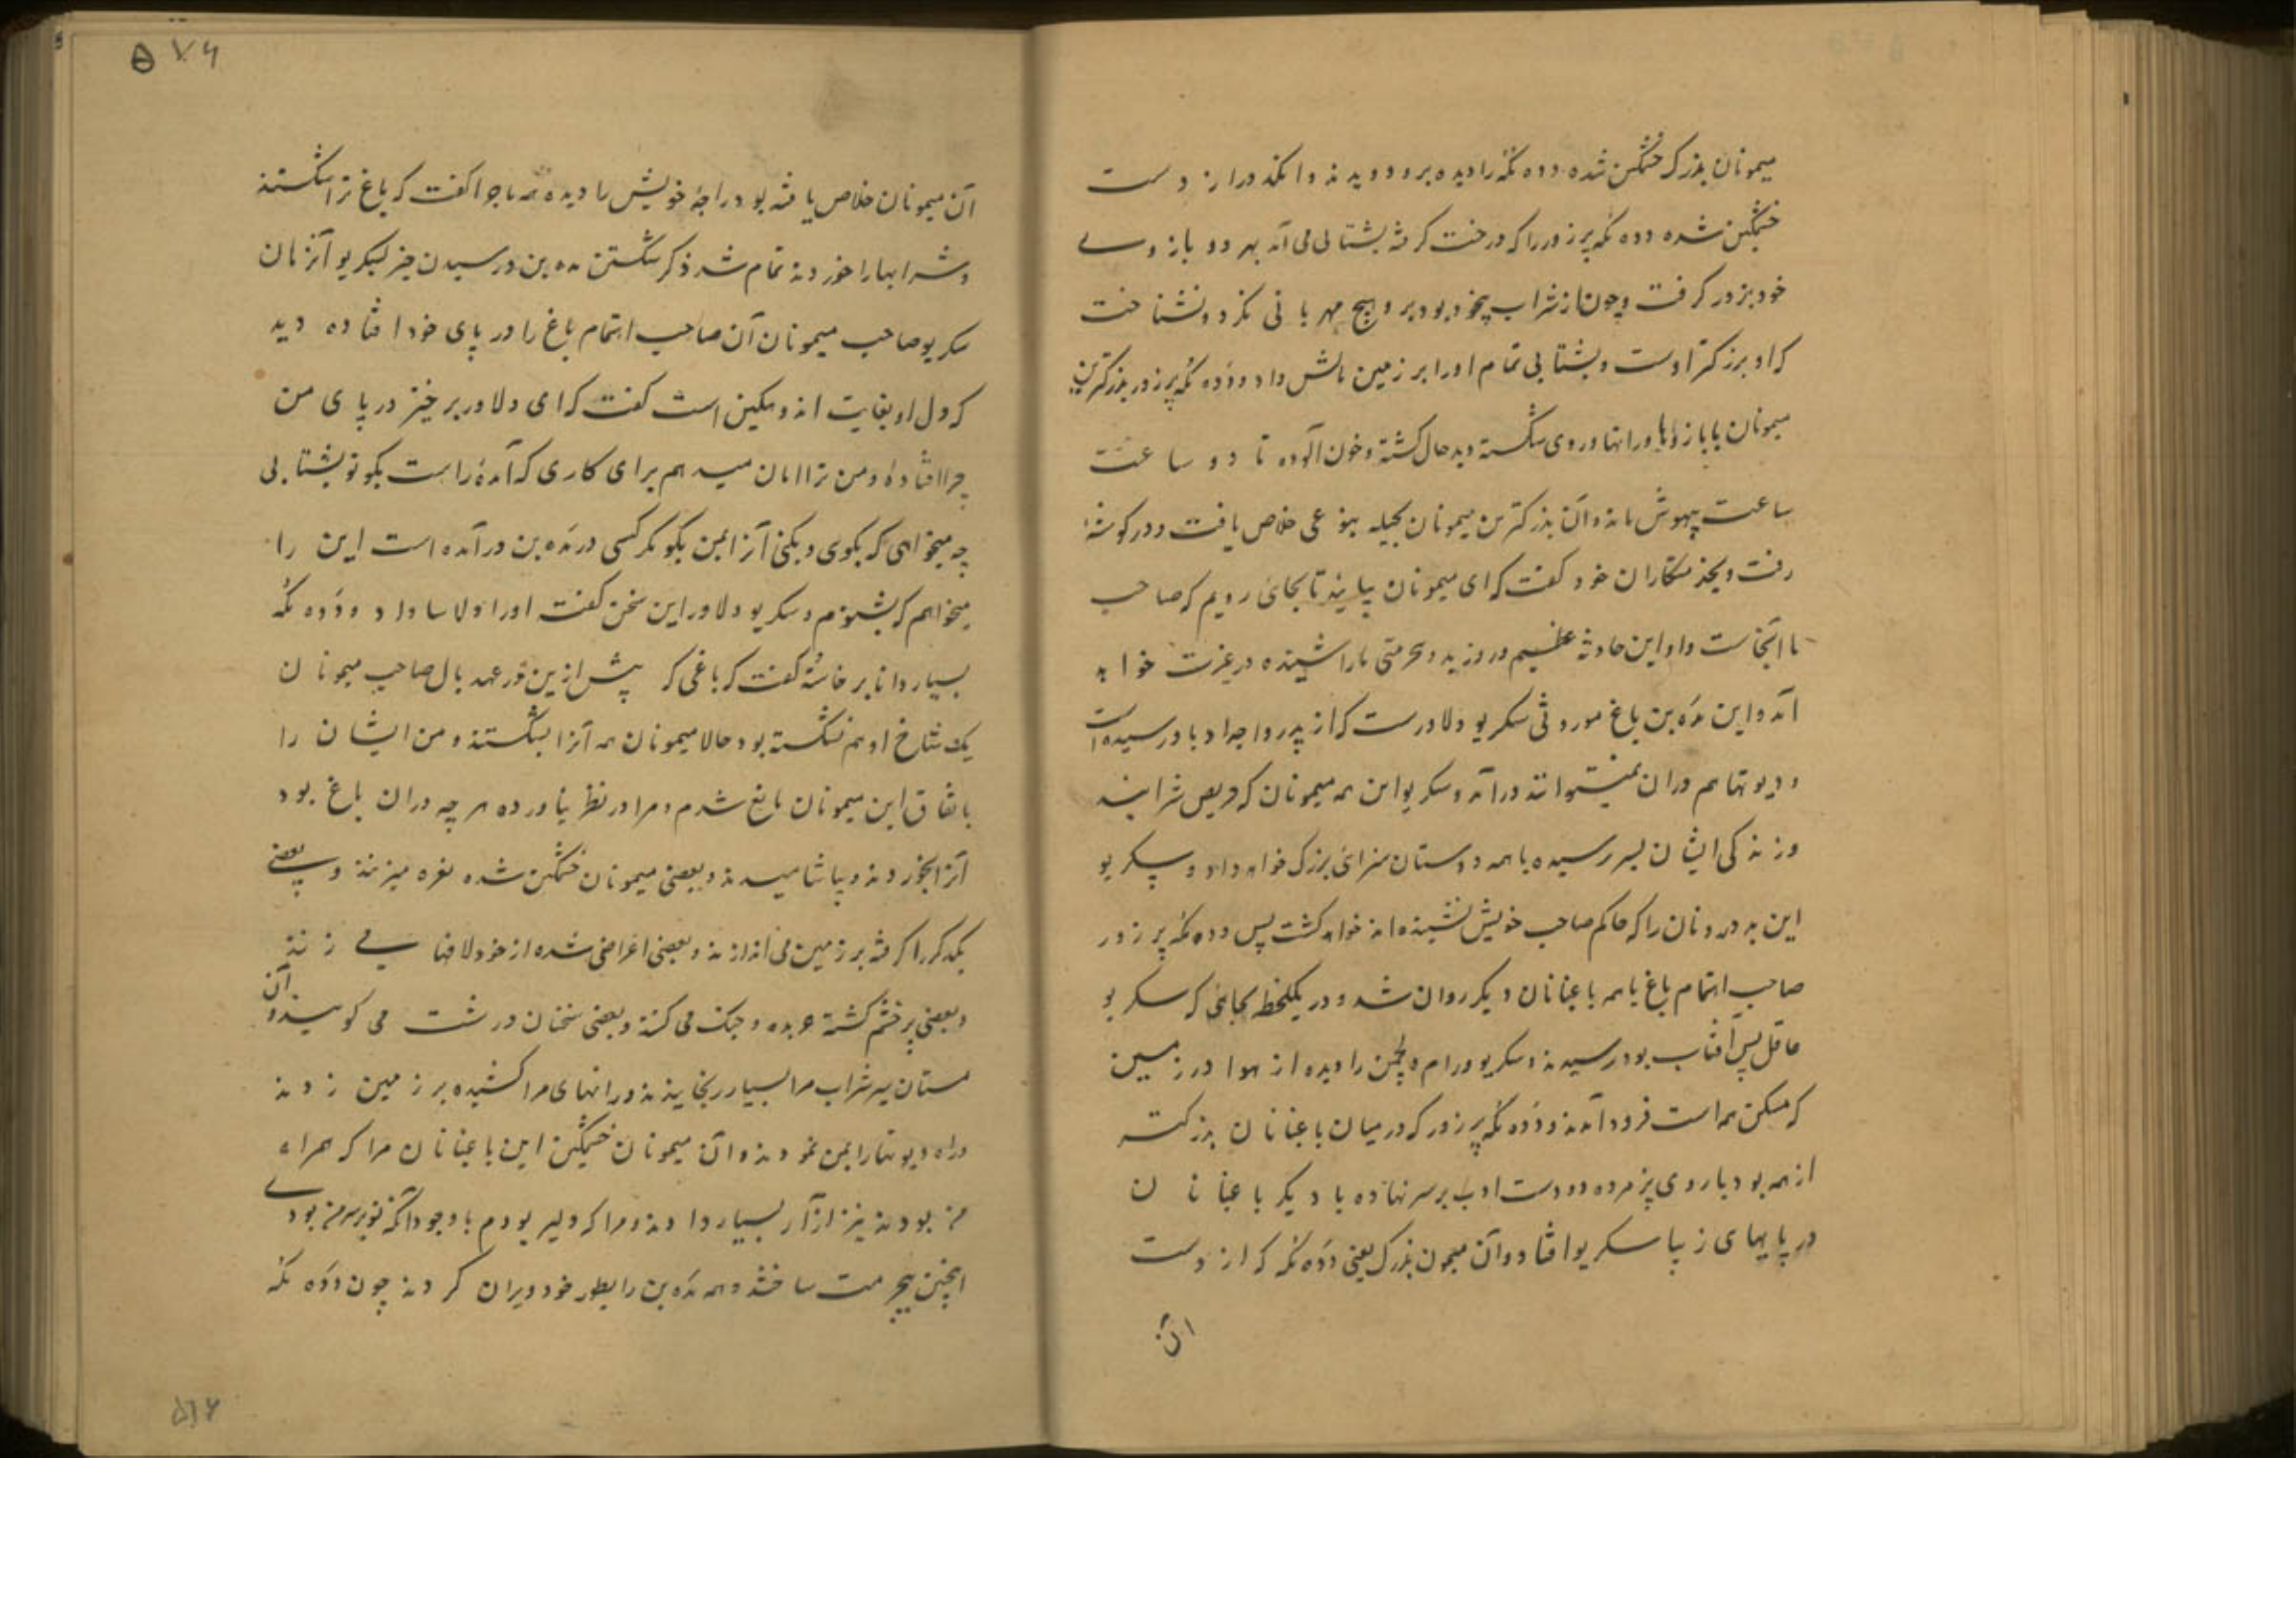 میمونان بزرک خشمکین شده دده مکهه را دیده برو دویدند و انکد دراز دست
خشمکین شده دده مکهه پر زور را که درخت کرفته بشتابی می آمد بهر دو بازوے
خود بزور کرفت و چون از شراب بیخود بود برو هیچ مهربانی نکرد و نشناخت
که او بزرکتر اوست و بشتابی تمام او را بر زمین مالش داد و دده مکهه پر زور بزرکترین
میمونان با بازوها و رانها و روی شکسته و بدحال کشته و خون آلوده تا دو ساعت
ساعت بیهوش ماند و آن بزرکترین میمونان بحیله بنوعی خلاص یافت و در کوشه
رفت و بخدمتکاران خود کفت که ای میمونان بیایند تا بجای رویم که صاحب
ما آنجاست و او این حادثه عظیم در وزید و بیحرمتی ما را شنیده در غیرت خواهد
آمد و این مده بن باغ موروثی سکریو دلاورست که از پدر و اجداد باو رسیده است
و دیوتها هم دران نمیتوانند درآمد و سکریو این همه میمونان که حریص شرابند
و زندکی ایشان بسر رسیده با همه دوستان سزای بزرک خواهد داد و سکریو
این بدرونان را که حکم صاحب خویش نشنیده اند خواهد کشت پس دده مکهه پر زور
صاحب اهتمام باغ با همه باغبانان دیکر روان شد و در یکلحظه بجایی که سکریو
عاقل پسر آفتاب بود رسیدند و سکریو و رام و لچمن را دیده از هوا در زمین
که مسکن همه است فرود آمدند و دده مکهه پر زور که در میان باغبانان بزرکتر
از همه بود با روی پژمرده دو دست ادب بر سر نهاده با دیکر باغبانان
در پایهای زیبا سکریو افتاد و آن میمون بزرک یعنی دده مکهه که از دست
آن
۵۷۶
آن میمونان خلاص یافته بود راجه خویش را دیده همه ماجرا کفت که باغ ترا شکستند
و شرابها را خوردند تمام شد ذکر شکستن مده بن و رسیدن خبر بسکریو آنزمان
سکریو صاحب میمونان آن صاحب اهتمام باغ را در پای خود افتاده دید
که دل او بغایت اندوهکین است کفت که ای دلاور برخیز در پای من
چرا افتاده و من ترا امان میدهم برای کاری که آمده راست بکو تو بشتابی
چه میخواهی که بکوی و بکنی آنرا بمن بکو مکر کسی در مده بن درآمده است این را
میخواهم که بشنوم و سکریو دلاور این سخن کفت او را دلاسا داد و دده مکهه
بسیار دانا برخاسته کفت که باغی که پیش ازین در عهد بال صاحب میمونان
یک شاخ او هم نشکسته بود حالا میمونان همه آنرا بشکستند و من ایشان را
باتفاق این میمونان مانع شدم و مرا در نظر نیاورده هر چه دران باغ بود
آنرا بخوردند و بیاشامیدند و بعضی میمونان خشمکین شده نعره میزنند و بعضی
یکدکر را کرفته بر زمین می اندازند و بعضی اعراضی شده از خود لافها می زنند
و بعضی پر خشم کشته عربده و جنک می کنند و بعضی سخنان درشت می کویند و آن
مستان پر شراب مرا بسیار رنجانیدند و رانهای مرا کشیده بر زمین زدند
و راه دیوتها را بمن نمودند و آن میمونان خشمکین این باغبانان مرا که همراه
من بودند نیز آزار بسیار دادند و مرا که دلیر بودم با وجود آنکه تو بر سر من بودے
اینچنین بیحرمت ساختند و همه مده بن را بطور خود ویران کردند چون دده مکهه